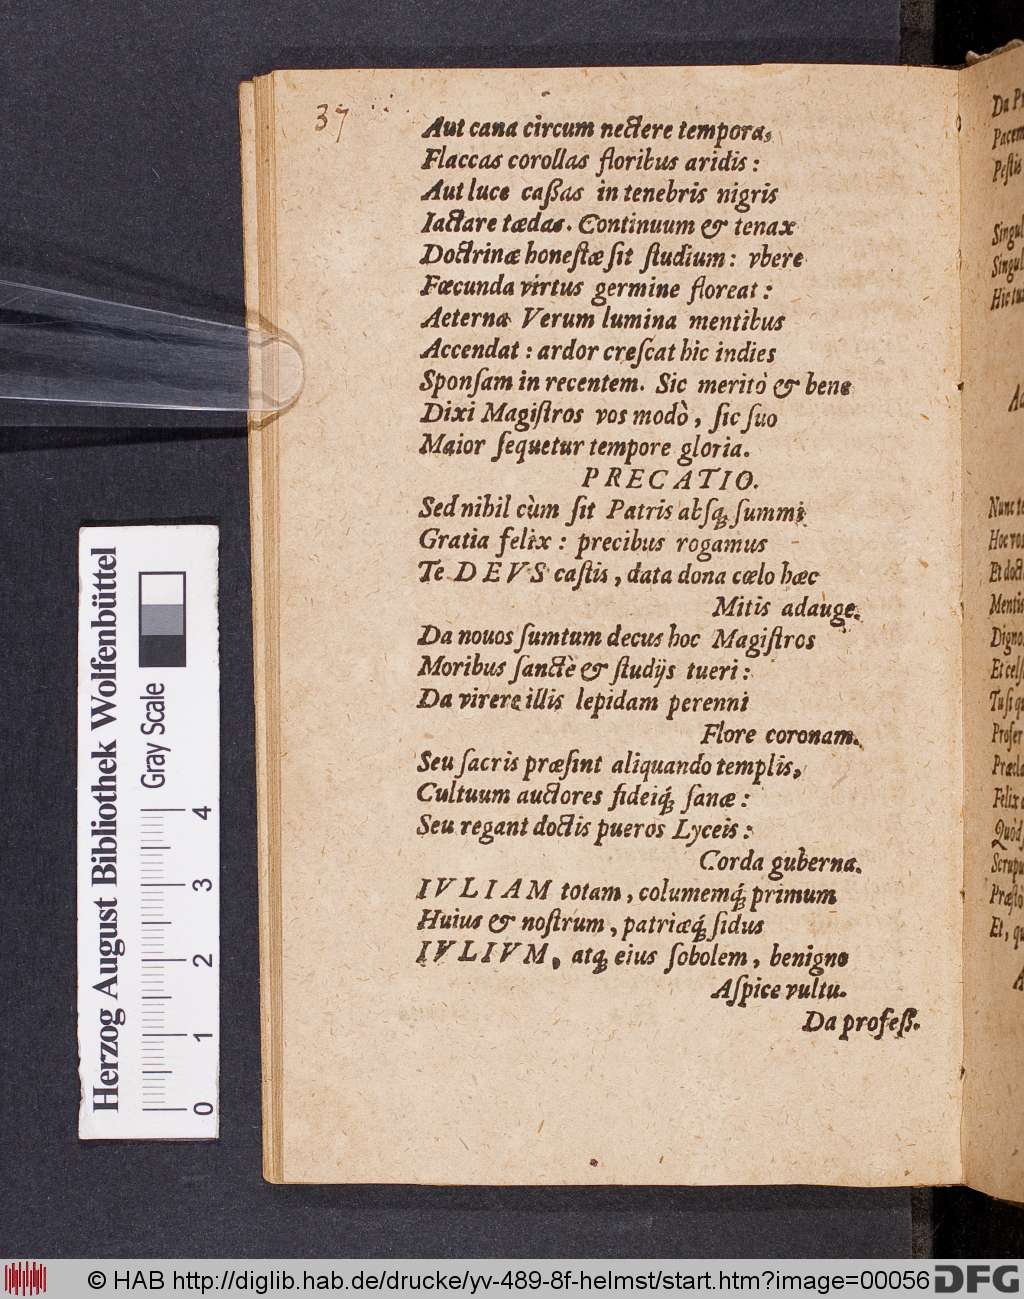 37
Aut cana circum nectere tempora,
Flaccas corollas floribus aridis:
Aut luce caßas in tenebris nigris
Iactare tædas. Continuum & tenax
Doctrinæ honestæ sit studium: vbere
Fœcunda virtus germine floreat:
Aeterna Verum lumina mentibus
Accendat: ardor crescat hic indies
Sponsam in recentem. Sic meritò & bene
Dixi Magistros vos modò, sic suo
Maior sequetur tempore gloria.
PRECATIO.
Sed nihil cùm sit Patris absq́ summi
Gratia felix: precibus rogamus
Te DEVS castis, data dona cœlo hæc
Mitis adauge.
Da nouos sumtum decus hoc Magistros
Moribus sanctè & studijs tueri:
Da virere illis lepidam perenni
Flore coronam.
Seu sacris præsint aliquando templis,
Cultuum auctores fideiq́ sanæ:
Seu regant doctis pueros Lyceis:
Corda guberna.
IVLIAM totam, columemq́ primum
Huius & nostrum, patriæq́ sidus
IVLIVM, atq́ eius sobolem, benigne
Aspice vultu.
Da profeß.
Da
Pacem
Pestis
Singul
Singul
Hic tui
Nunc te
Hoc vos
Et doct
Mentis
Digno
Et cels
Tu si qu
Profer
Præcla
Felix
Quòd
Scrupu
Præsto
Et, qu
Herzog August Bibliothek Wolfenbüttel
Gray Scale
0 1 2 3 4
© HAB http://diglib.hab.de/drucke/yv-489-8f-helmst/start.htm?image=00056
DFG